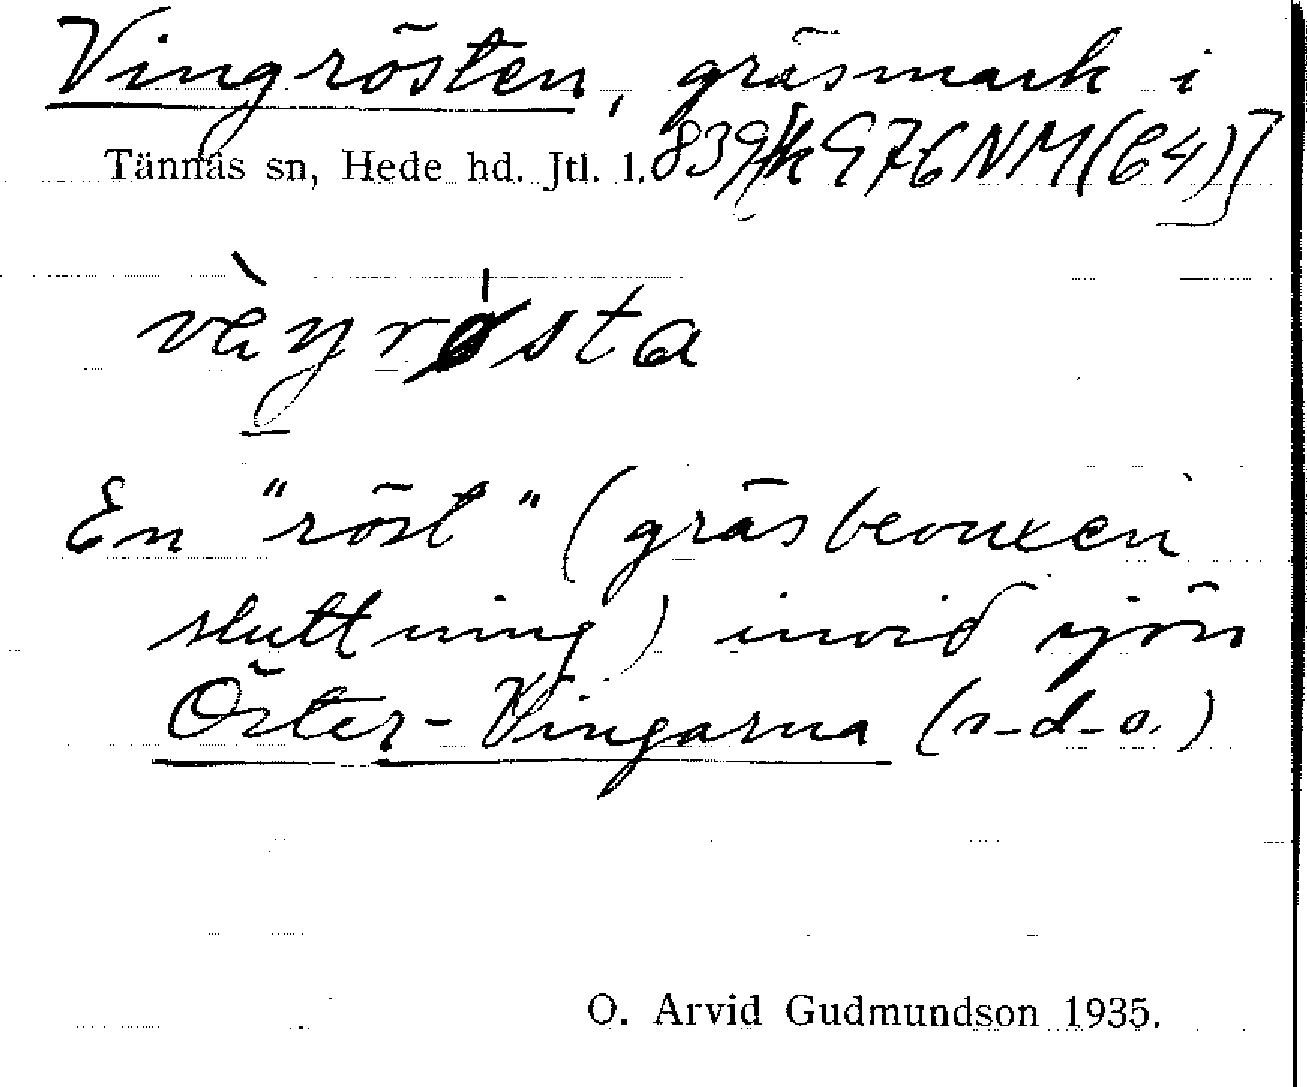 Vingrösten, gräsmark i
Tännäs sn, Hede hd. Jtl. l.
vèŋrøsta
En "röst" (gräsbevuxen
sluttning) invid sjön
Öster-Vingarna (s-d-o.)
O. Arvid Gudmundson 1935.